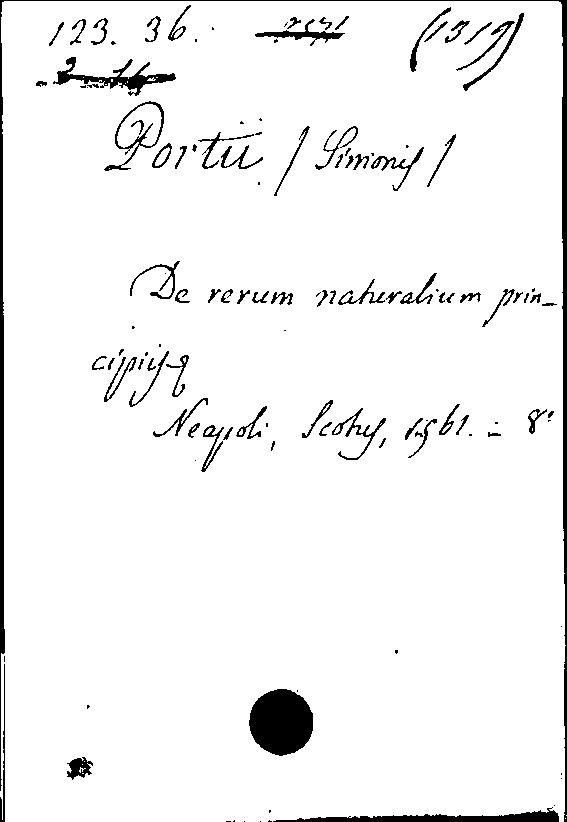 123. 36. (1319)
Portii / Simonis /
De rerum naturalium prin-
cipiis
Neapoli, Scotus, 1561. - 8°